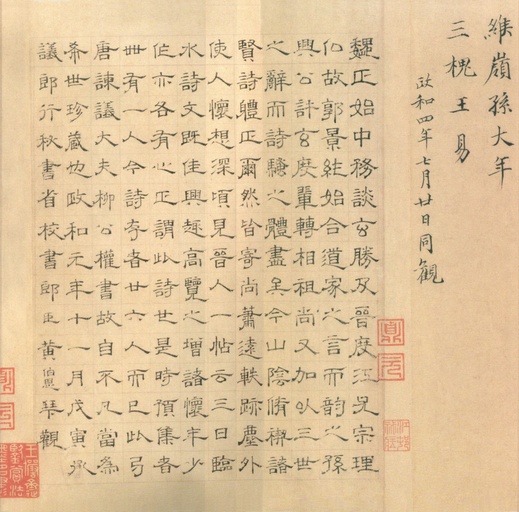 維嶺孫大年
三槐王易
政和四年七月廿日同觀
魏正始中務談玄勝及晉度江尤宗理
化故郭景純始合道家之言而韻之孫
興公許玄度輩轉相祖尚又加以三世
之辭而詩騷之體盡矣今山陰脩禊諸
賢詩體正爾然皆寄尚蕭遠軼跡塵外
使人懷想深頃見晉人一帖云三日臨
水詩文既佳興趣高覽之增諸懷年少
作亦各有心正謂此詩也是時預集者
卌有一人今詩存者廿六人而已此弓
唐諫議大夫柳公權書故自不凡當為
希世珍藏也政和元年十一月戊寅承
議郎行秘書省校書郎臣黃伯思觀